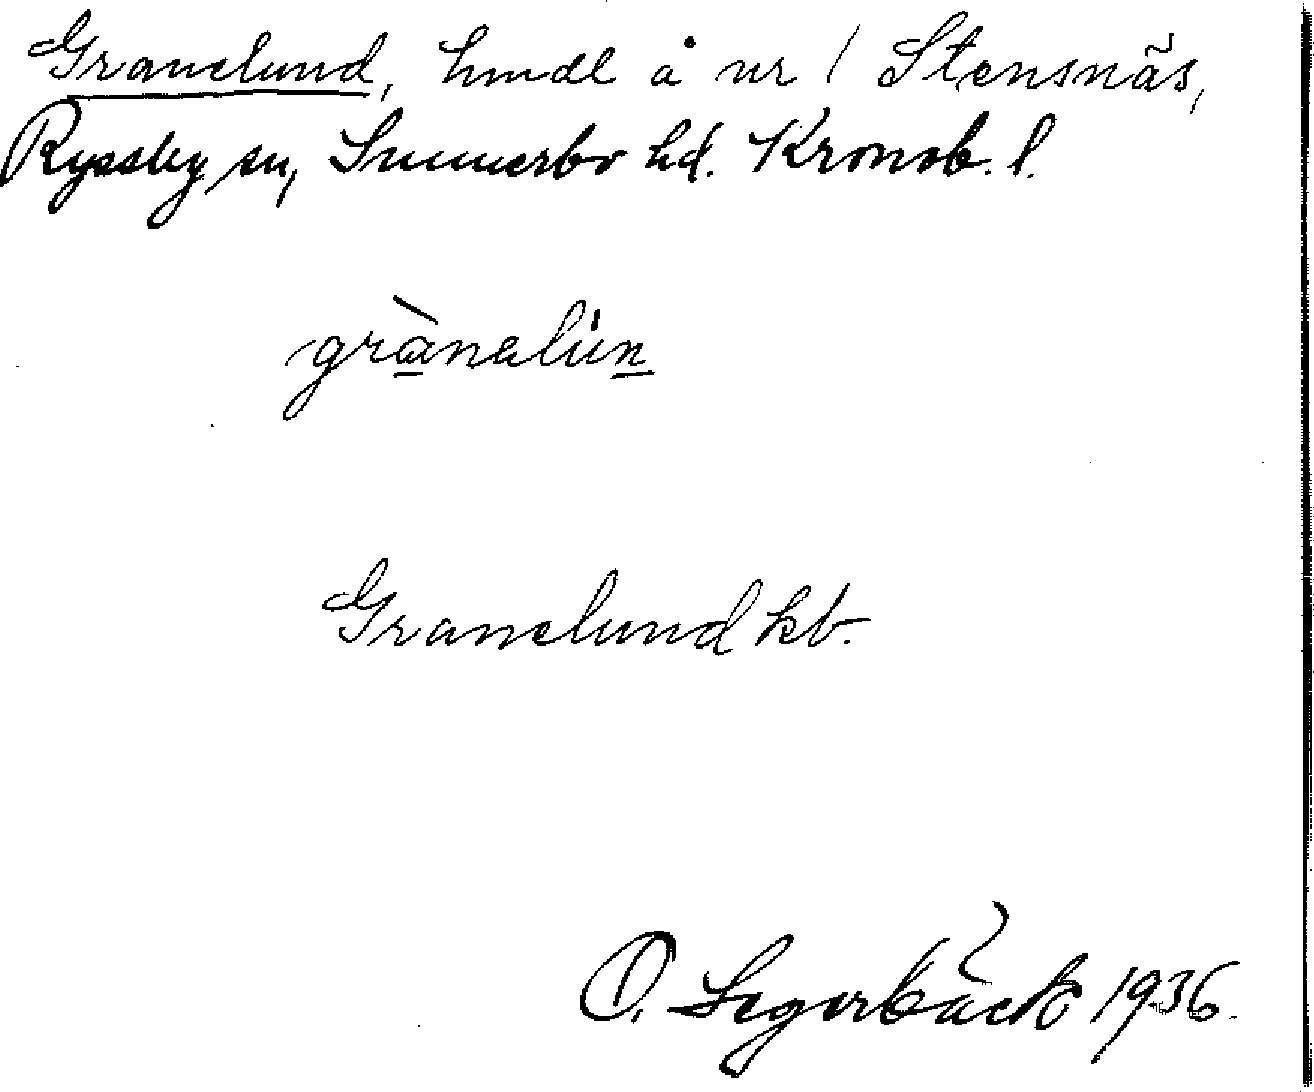 Granelund, hmdl å nr 1 Stensnäs,
Ryssby sn, Sunnerbo hd. Kronob. l.
grànalún
Granelund kb.
O. Segerbäck 1936.